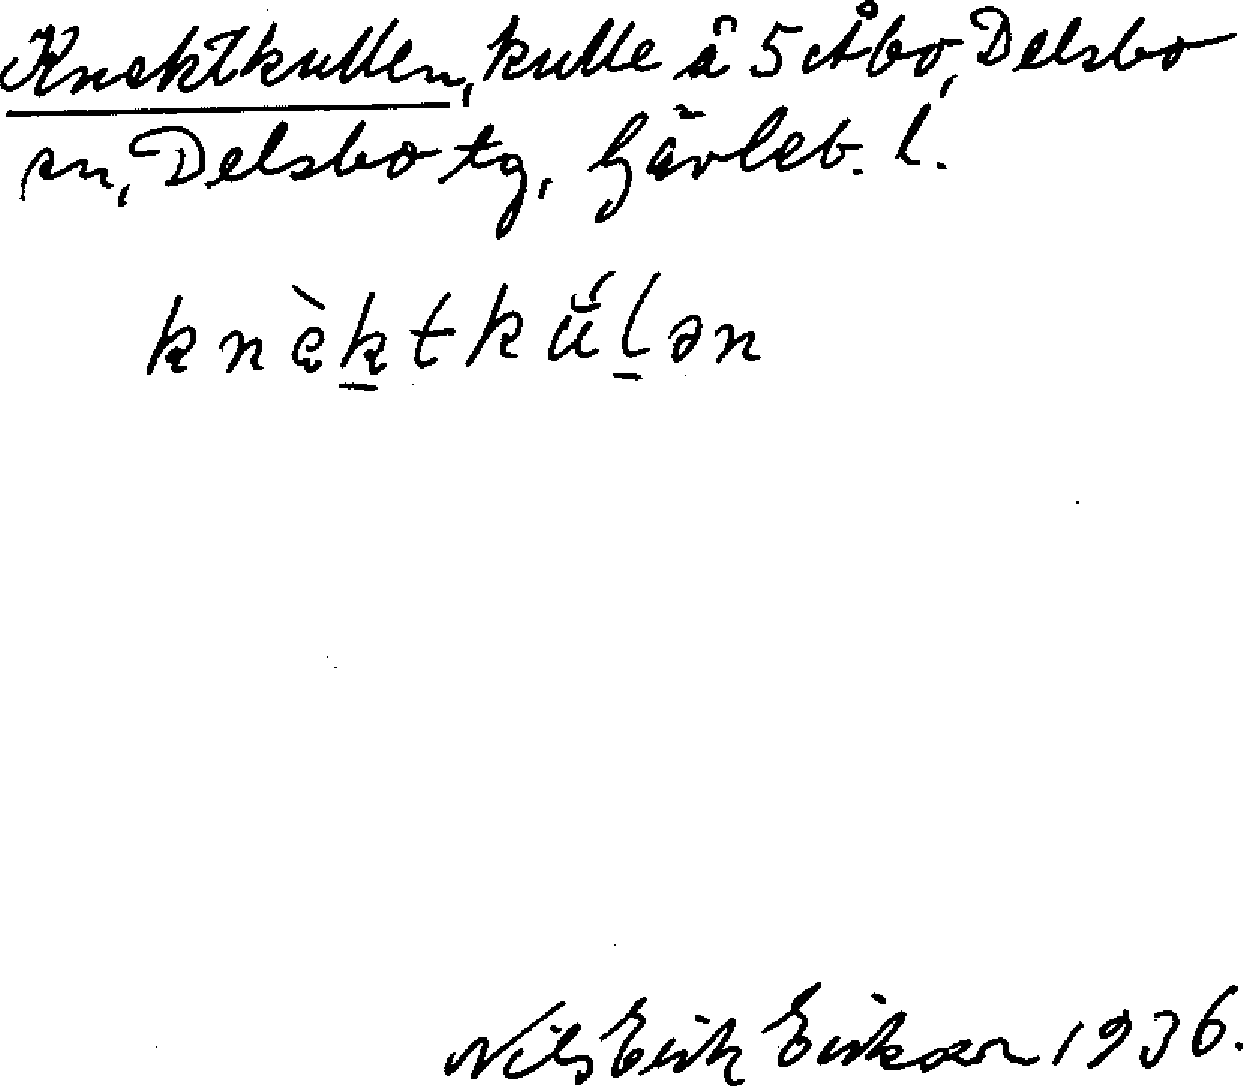 Knektkullen, kulle å 5 Åbo, Delsbo
sn, Delsbo tg, Gävleb. l.
knὲktkŭ́lən
Nils Erik Erikson 1936.